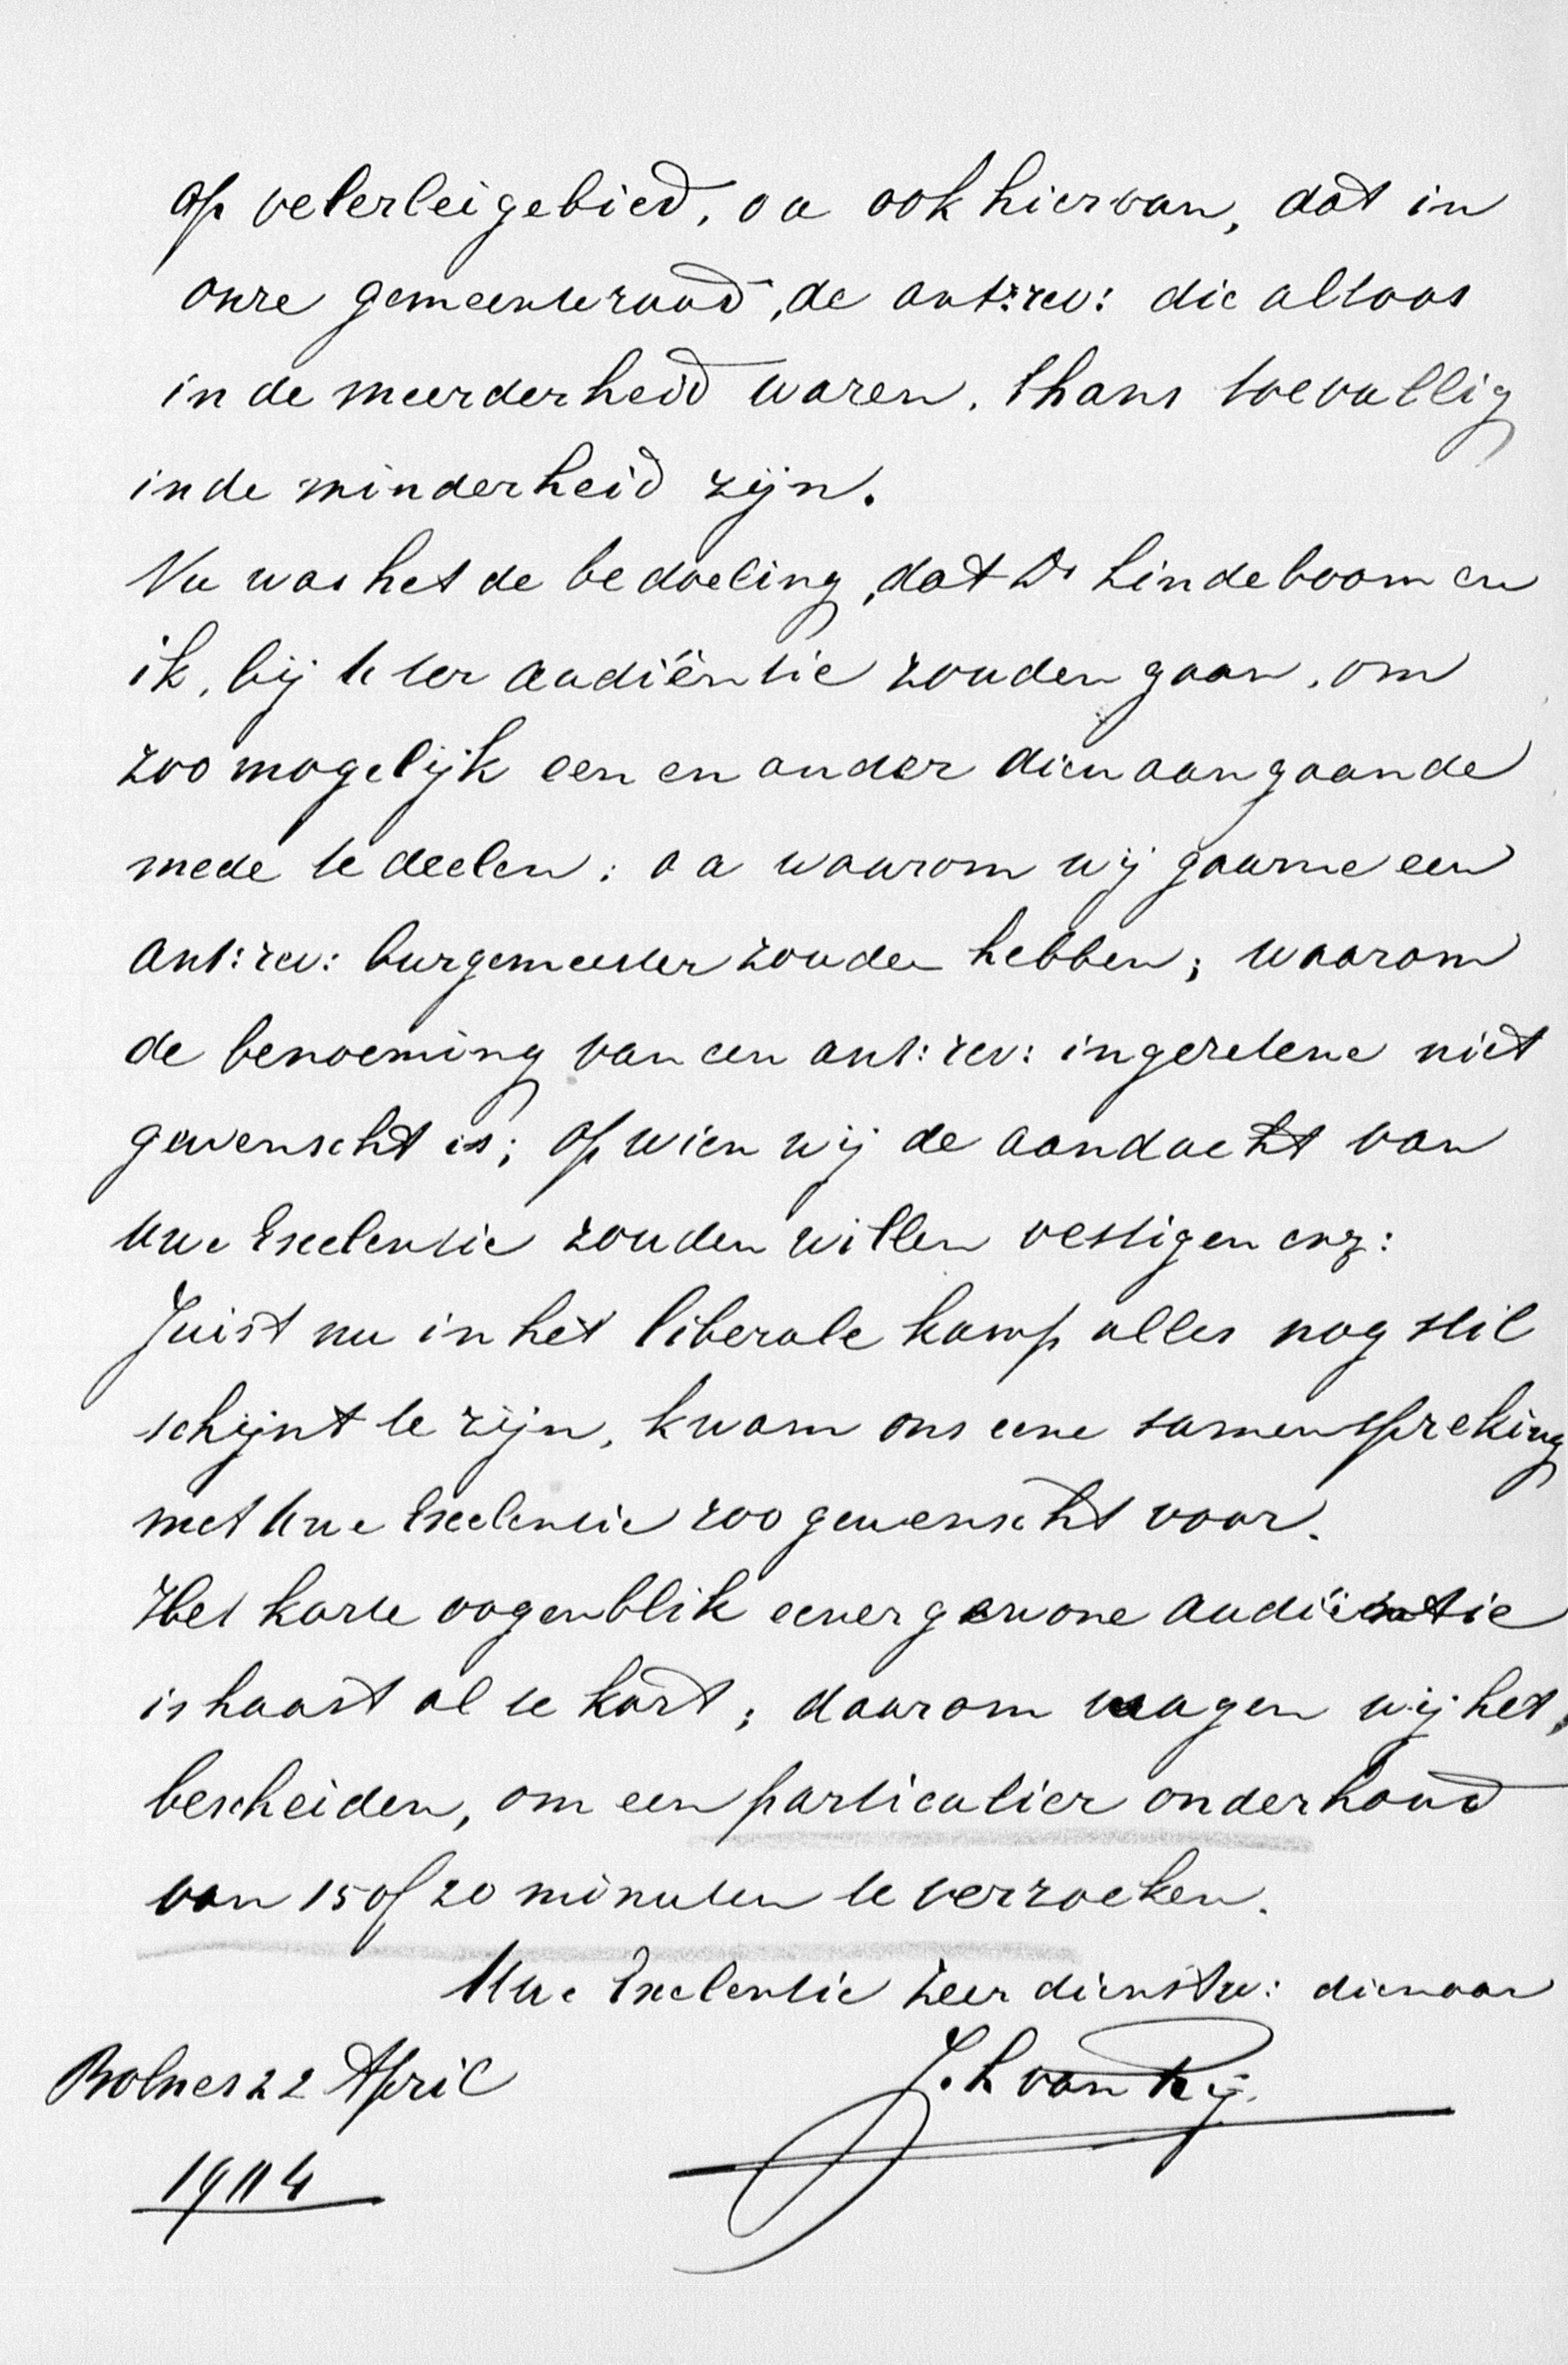 op velerlei gebied, oa ook hiervan, dat in
onze gemeenteraad, de ant:rev: die altoos
in de meerderheid waren, thans toevallig
in de minderheid zijn.
Nu was het de bedoeling, dat Ds Lindeboom en
ik, bij U ter audiëntie zouden gaan, om
zoo mogelijk een en ander dienaangaande
mede te deelen: oa waarom wij gaarne een
ant:rev: burgemeester zouden hebben; waarom
de benoeming van een ant:rev: ingezetene niet
gewenscht is; op wien wij de aandacht van
Uwe Excelentie zouden willen vestigen enz:
Juist nu in het liberale kamp alles nog stil
schijnt te zijn, kwam ons eene samenspreking
met Uwe Excelentie zoo gewenscht voor.
Het korte oogenblik eener gewone audiëntie
is haast al te kort; daarom wagen wij het,
bescheiden, om een particulier onderhoud
van 15 of 20 minuten te verzoeken.
Uwe Excelentie zeer dienstw: dienaar
Bolnes 22 April
J. L van Rij.
1904